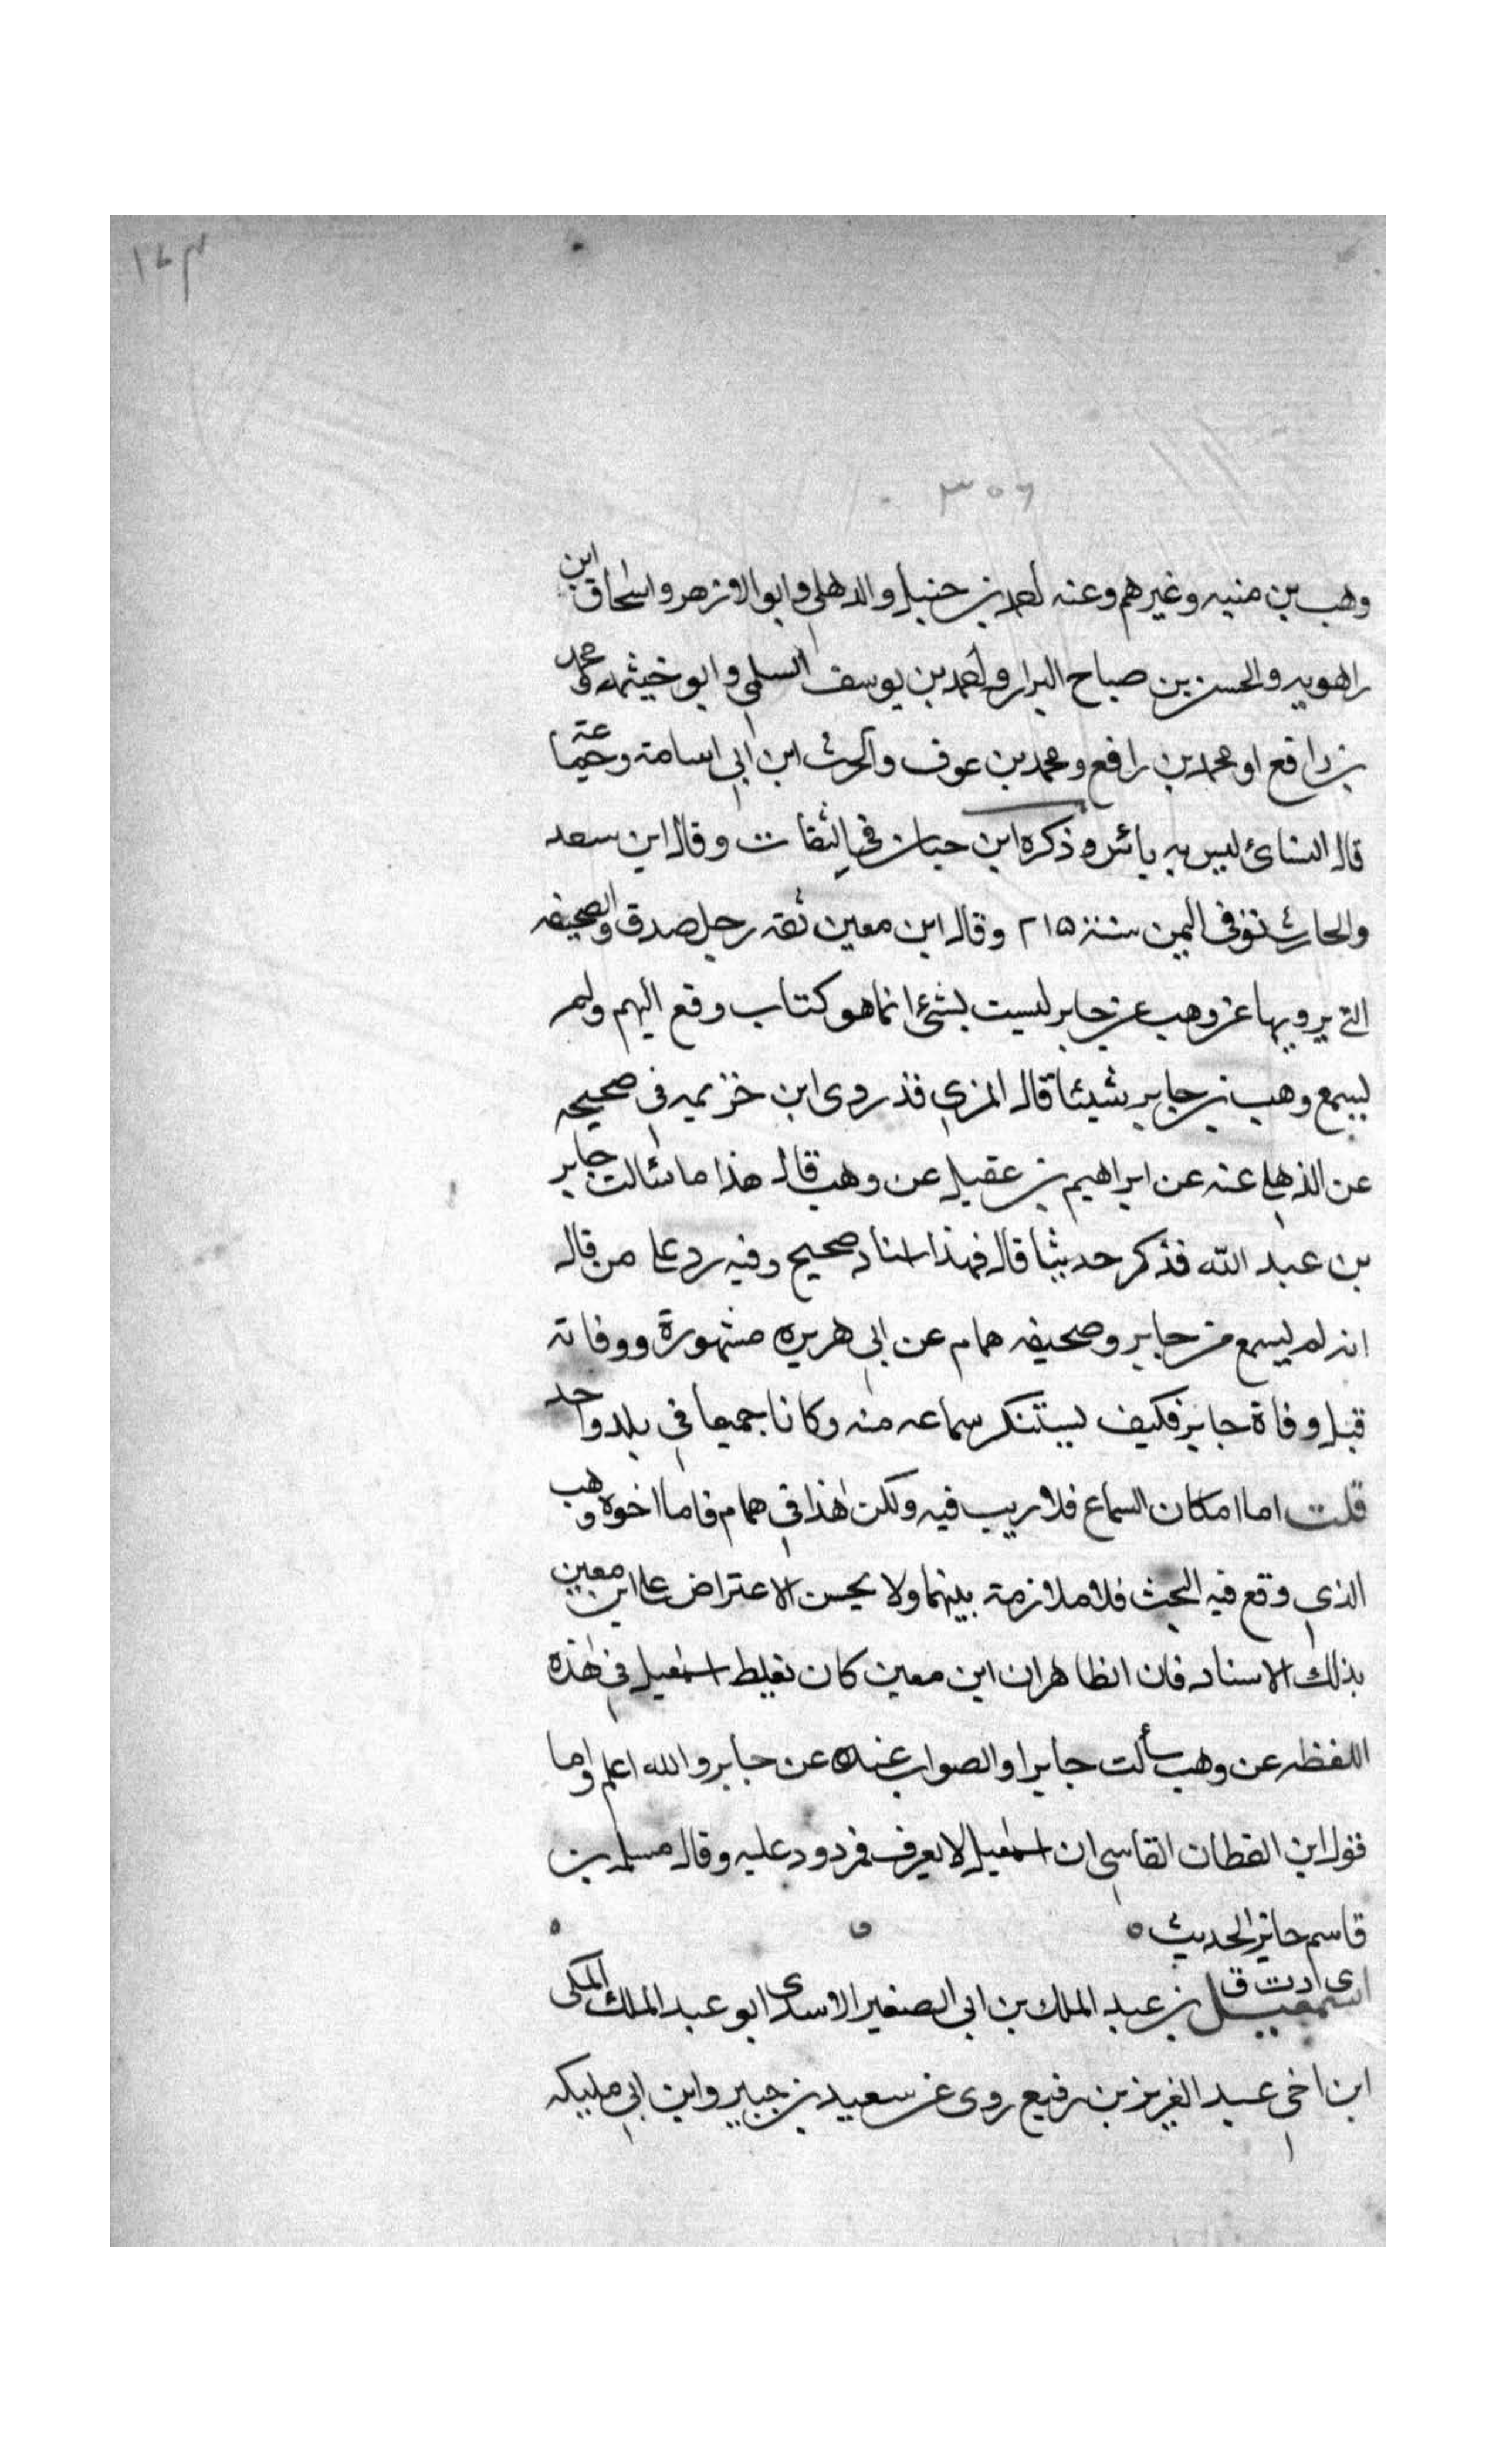 ١٧٣
٣٥٦
وهب بن منبه وغيرهم وعنه احمد بن حنبل والذهلي وابو الازهر واسحاق ابن
راهويه والحسن بن صباح البزار واحمد بن يوسف السلمي وابو خيثمه ومحمد
بن رافع او محمد بن رافع ومحمد بن عوف والحرث ابن ابي اسامة وجماعة
قال النسائ ليس به بائس وذكره ابن حبان في الثقات وقال ابن سعد
والحارث توفى اليمن سنة ٢١٥ وقال ابن معين ثقه رجل صدق والصحيفه
التي يرويها عن وهب عن جابر ليست بشئ انما هو كتاب وقع اليهم ولم
يسمع وهب بن جابر شيئا قال المزي قد روى ابن خزيمه فى صحيحه
عن الذهلي عنه عن ابراهيم بن عقيل عن وهب قال هذا ما سئالت جابر
بن عبد الله فذكر حديثا قال فهذا اسناد صحيح وفيه رد على من قال
انه لم يسمع من جابر وصحيفه همام عن ابي هريره مشهورة ووفاته
قبل وفاة جابر فكيف يستنكر سماعه منه وكانا جميعا في بلد واحد
قلت اما امكان السماع فلا ريب فيه ولكن هذا في همام فاما اخوه وهب
الذي وقع فيه البحث فلا ملازمة بينهما ولا يحسن الاعتراض على ابن معين
بذلك الاسناد فان الظاهر ان ابن معين كان يغلط اسمعيل في هذه
اللفظه عن وهب سألت جابرا والصواب عنده عن جابر والله اعلم واما
قول ابن القطان الفاسي ان اسمعيل لا يعرف فمردود عليه وقال مسلمه بن
قاسم جائز الحديث ٥
ى د ت ق
اسمعيل بن عبد الملك بن ابى الصغير الاسدى ابو عبد الملك المكى
ابن اخي عبد العزيز بن رفيع روى عن سعيد بن جبير وابن ابي مليكه